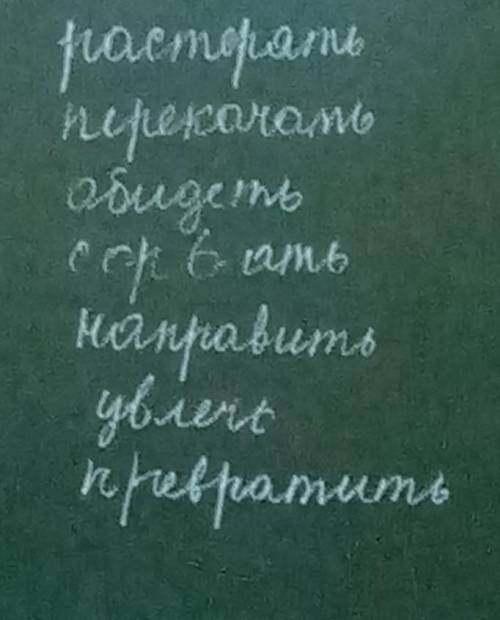 растерять
перекачать
обидеть
сорвать
направить
увлечь
превратить